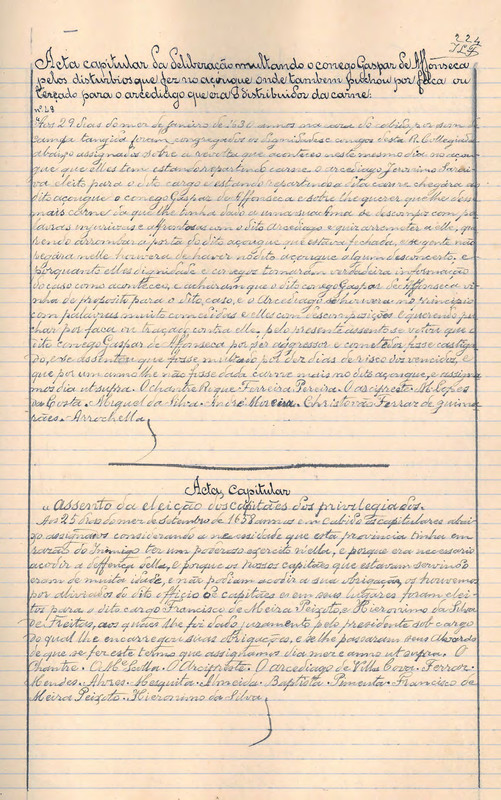 224
Acta capitular da deliberação multando o conego Gaspar de Affonseca
pelos disturbios que fez no açougue onde tambem puchou por faca ou
terçado para o arcediago que era o distribuidor da carne:
nº 48
Aos 29 dias do mez de Janeiro de 1630 annos na casa do cabido por som de
campa tangida foram congregados os dignidades e conegos desta R. Collegiada
abaixo assignados sobre a revolta que aconteceo neste mesmo dia no açou-
gue que elles tem estando repartindo carne o arcediago Jeronimo Sarai-
va eleito para o dito cargo e estando repartindo a dita carne chegára ao
dito açougue o conego Gaspar de Affonseca e sobre lhe querer que lhe dem
mais carne da que lhe tinha dado a uma sua ama se descompoz com pa-
lavras injuriosas e afrontosas com o dito Arcediago e quiz arremeter a elle, que-
rendo arrombar a porta do dito açougue que estava fechada, e se gente não
pegára nelle houvera de haver no dito açougue algum desconcerto, e
porquanto elles dignidade e conegos tomaram verdadeira informação
do caso como aconteceu, e acharam que o dito conego Gaspar de Affonseca vi-
nha de proposito para o dito caso, e o Arcediago se houvera no principio
com palavras muito comedidas e elles com descomposições e querendo pu-
char por faca ou traçado contra elle, pelo presente assento se votou que o
dito conego Gaspar de Affonseca por ser aggressor e cometedor fosse castiga-
do, e se assentou que fosse multado por dez dias de risco dos vencidos, e
que por um anno lhe não fosse dada carne mais no dito açougue, e assigna-
mos dia ut supra. O chantre Roque Ferreira Pereira. O arcipreste M. Lopes
da Costa. Miguel da Silva. André Moreira. Christovão Ferraz de guima-
rães. Arrochella
Acta, Capitular
Assento da eleição dos capitães dos privilegiados.
Aos 25 dias do mez de setembro de 1658 annos em Cabido os capitulares abai-
xo assignados considerando a necessidade que esta provincia tinha em
razão do Inimigo ter um poderoso exercito nella, e porque era necessario
acodir a deffença della, e porque os nossos capitães que estavam servindo
eram de muita idade, e não podiam acodir a sua obrigação, os houvemos
por aliviados do dito officio de capitães e em seus lugares foram elei-
tos para o dito cargo Francisco de Meira Peixoto, e Hieronimo da Silva
de Freitas, aos quaes lhe foi dado juramento pelo presidente sob cargo
do qual lhe encarregou suas obrigações, e se lhe passaram seus Alvarás
de que se fez este termo que assignamos dia mez e anno ut supra. O
Chantre. O Arcipreste. O arcediago de Villa Cova. Ferraz.
Mendes. Abres. Mesquita. Almeida. Baptista. Pimenta. Francisco de
Meira Peixoto. Hieronimo da Silva.